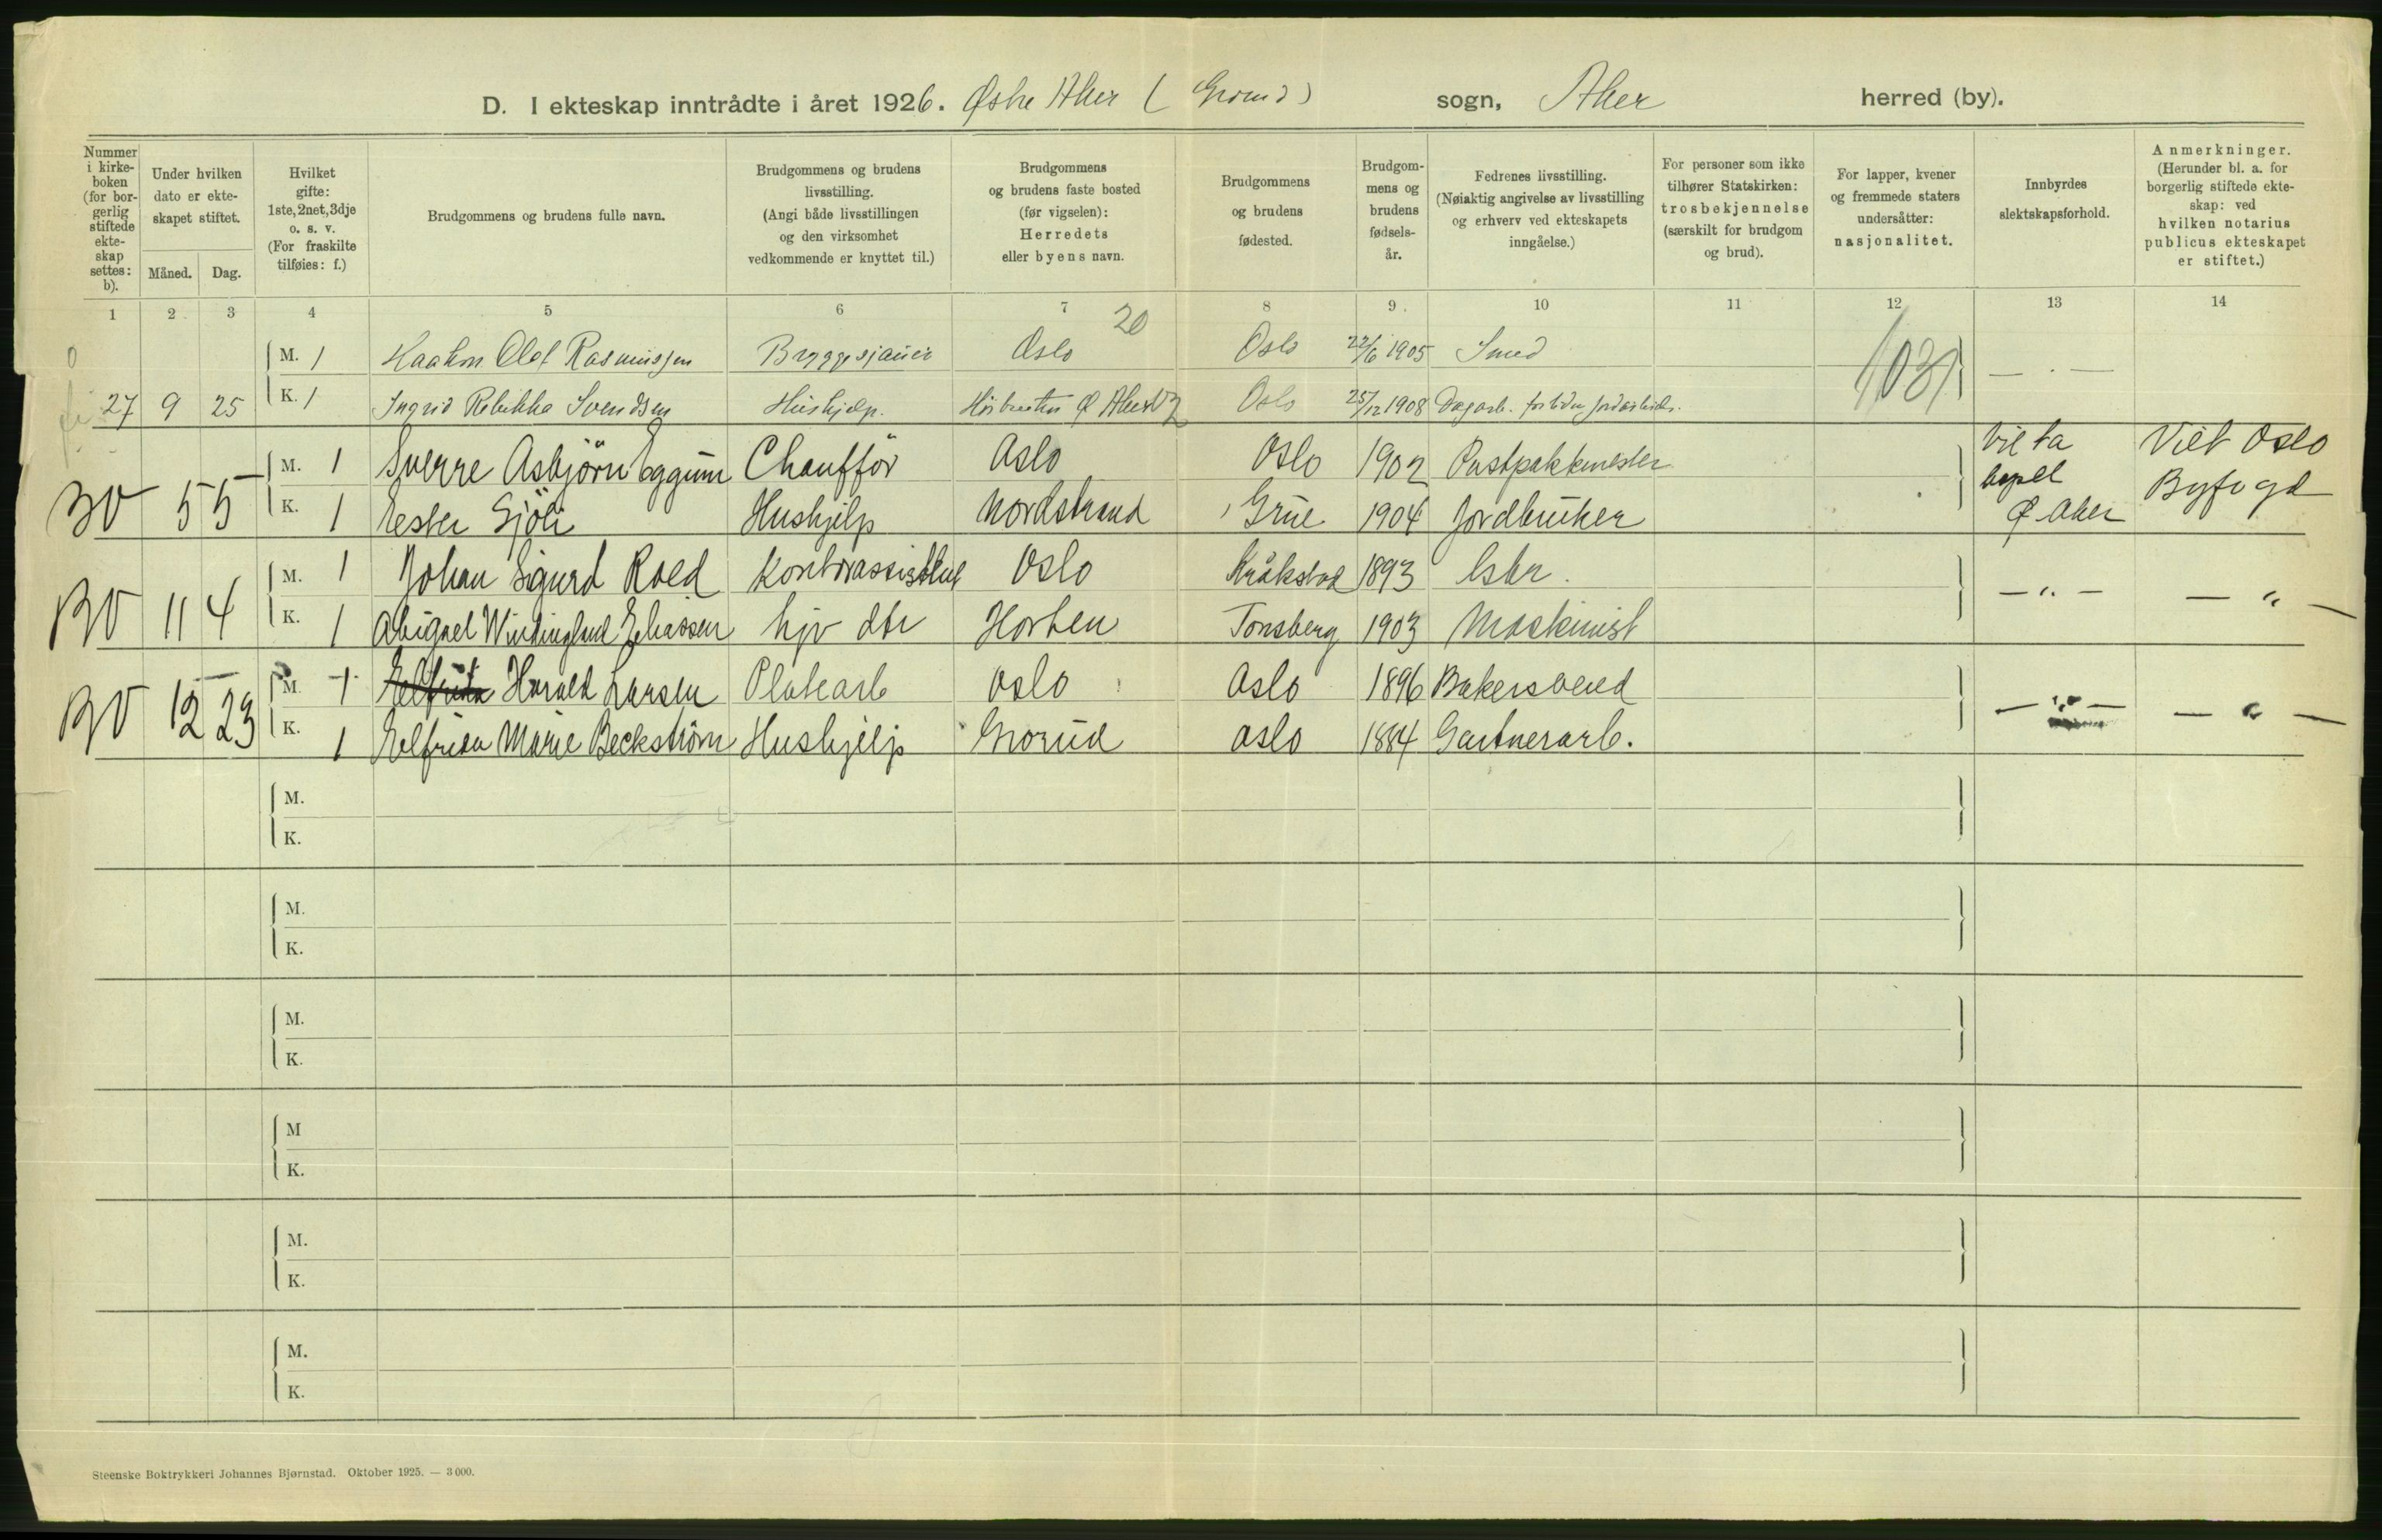 D. I ekteskap inntrådte i året 1926. Østre Aker (Grorud) sogn, Aker herred (by).
Nummer i kirke-boken (for bor-gerlig stiftede ekte-skap settes: b).
Under hvilken dato er ekte-skapet stiftet.
Måned. Dag.
Hvilket gifte: 1ste, 2net, 3dje o. s. v. (For fraskilte tilføies: f.)
Brudgommens og brudens fulle navn.
Brudgommens og brudens livsstilling. (Angi både livsstillingen og den virksomhet vedkommende er knyttet til.)
Brudgommens og brudens faste bosted (før vigselen): Herredets eller byens navn.
Brudgommens og brudens fødested.
Brudgom-mens og brudens fødsels-år.
Fedrenes livsstilling. (Nøiaktig angivelse av livsstilling og erhverv ved ekteskapets inngåelse.)
For personer som ikke tilhører Statskirken: trosbekjennelse (særskilt for brudgom og brud).
For lapper, kvener og fremmede staters undersåtter: nasjonalitet.
Innbyrdes slektskapsforhold.
Anmerkninger. (Herunder bl. a. for borgerlig stiftede ekte-skap: ved hvilken notarius publicus ekteskapet er stiftet.)
1 2 3 4 5 6 7 8 9. 10 11 12 13 14
20
0 M. 1 Haakon Olof Rasmussen Bryggesjauer Oslo Oslo 22/6 1905 Smed — . —
27 9 25 K. 1 Ingrid Rebekka Svendsen Hushjelp. Ø Aker Oslo 25/12 1908
103
M. 1 Sverre Asbjörn Eggum Chafför Oslo Oslo 1902 Postpakkmester Vil ta bopel Ø Aker Viet Oslo Byfogd
BV 5 5 K. 1 Ester Sjöli Hushjelp Nordstrand Grue 1904 Jordbruker
M. 1 Johan Sigurd Roed Kontorassistent Oslo Kråkstad 1893 — " — — " —
BV 11 4 K. 1 Abigael Eliassen hjv dtr Horten Tønsberg 1903 Maskinist
M. 1 Elfrida Harald Larsen Platearb Oslo Oslo 1896 Bakersvend — " — — " —
BV 12 23 K. 1 Elfrida Marie Beckstrøm Hushjelp Grorud Oslo 1884 Gartnerarb.
M.
K.
M.
K.
M.
K.
M
K.
M.
K.
M.
K.
Steenske Boktrykkeri Johannes Bjørnstad. Oktober 1925. — 3000.